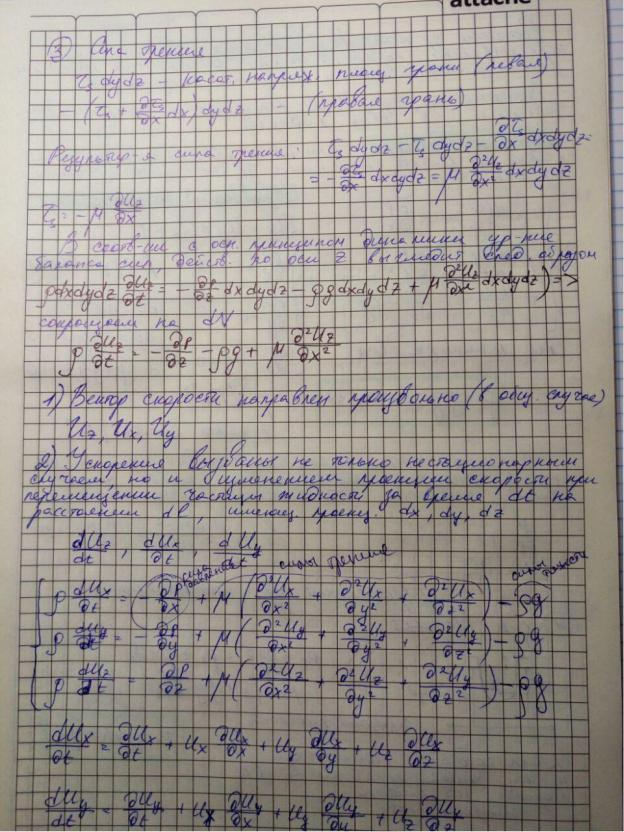 attache
③ Сила трения
τₛ dydz – касат. напряж. площ. грани (левая)
– (τₛ + ∂τₛ/∂x dx) dydz – (правая грань)
Результир-я сила трения: τₛ dydz – τₛ dydz – ∂τₛ/∂x dxdydz =
= – ∂τₛ/∂x dxdydz = μ ∂²U_z/∂x² dxdydz
τₛ = – μ ∂U_z/∂x
В соотв-ии с осн. принципом динамики ур-ние
баланса сил, действ. по оси z выглядит след. образом
ρdxdydz ∂U_z/∂t = – ∂P/∂z dxdydz – ρg dxdydz + μ ∂²U_z/∂x² dxdydz) =>
сокращаем на dV
ρ ∂U_z/∂t = – ∂P/∂z – ρg + μ ∂²U_z/∂x²
1) Вектор скорости направлен произвольно (в общ. случае)
U_z, U_x, U_y
2) Ускорения вызваны не только нестационарным
случаем, но и изменением проекции скорости при
перемещении частицы жидкости за время dt на
расстояний dl, имеющ. проекц. dx, dy, dz
dU_z/dt, dU_x/dt, dU_y/dt
сила давления силы трения силы тяжести
ρ dU_x/dt = – ∂P/∂x + μ (∂²U_x/∂x² + ∂²U_x/∂y² + ∂²U_x/∂z²) – ρg
ρ dU_y/dt = – ∂P/∂y + μ (∂²U_y/∂x² + ∂²U_y/∂y² + ∂²U_y/∂z²) – ρg
ρ dU_z/dt = – ∂P/∂z + μ (∂²U_z/∂x² + ∂²U_z/∂y² + ∂²U_y/∂z²) – ρg
dU_x/dt = ∂U_x/∂t + U_x ∂U_x/∂x + U_y ∂U_x/∂y + U_z ∂U_x/∂z
dU_y/dt = ∂U_y/∂t + U_x ∂U_y/∂x + U_y ∂U_y/∂y + U_z